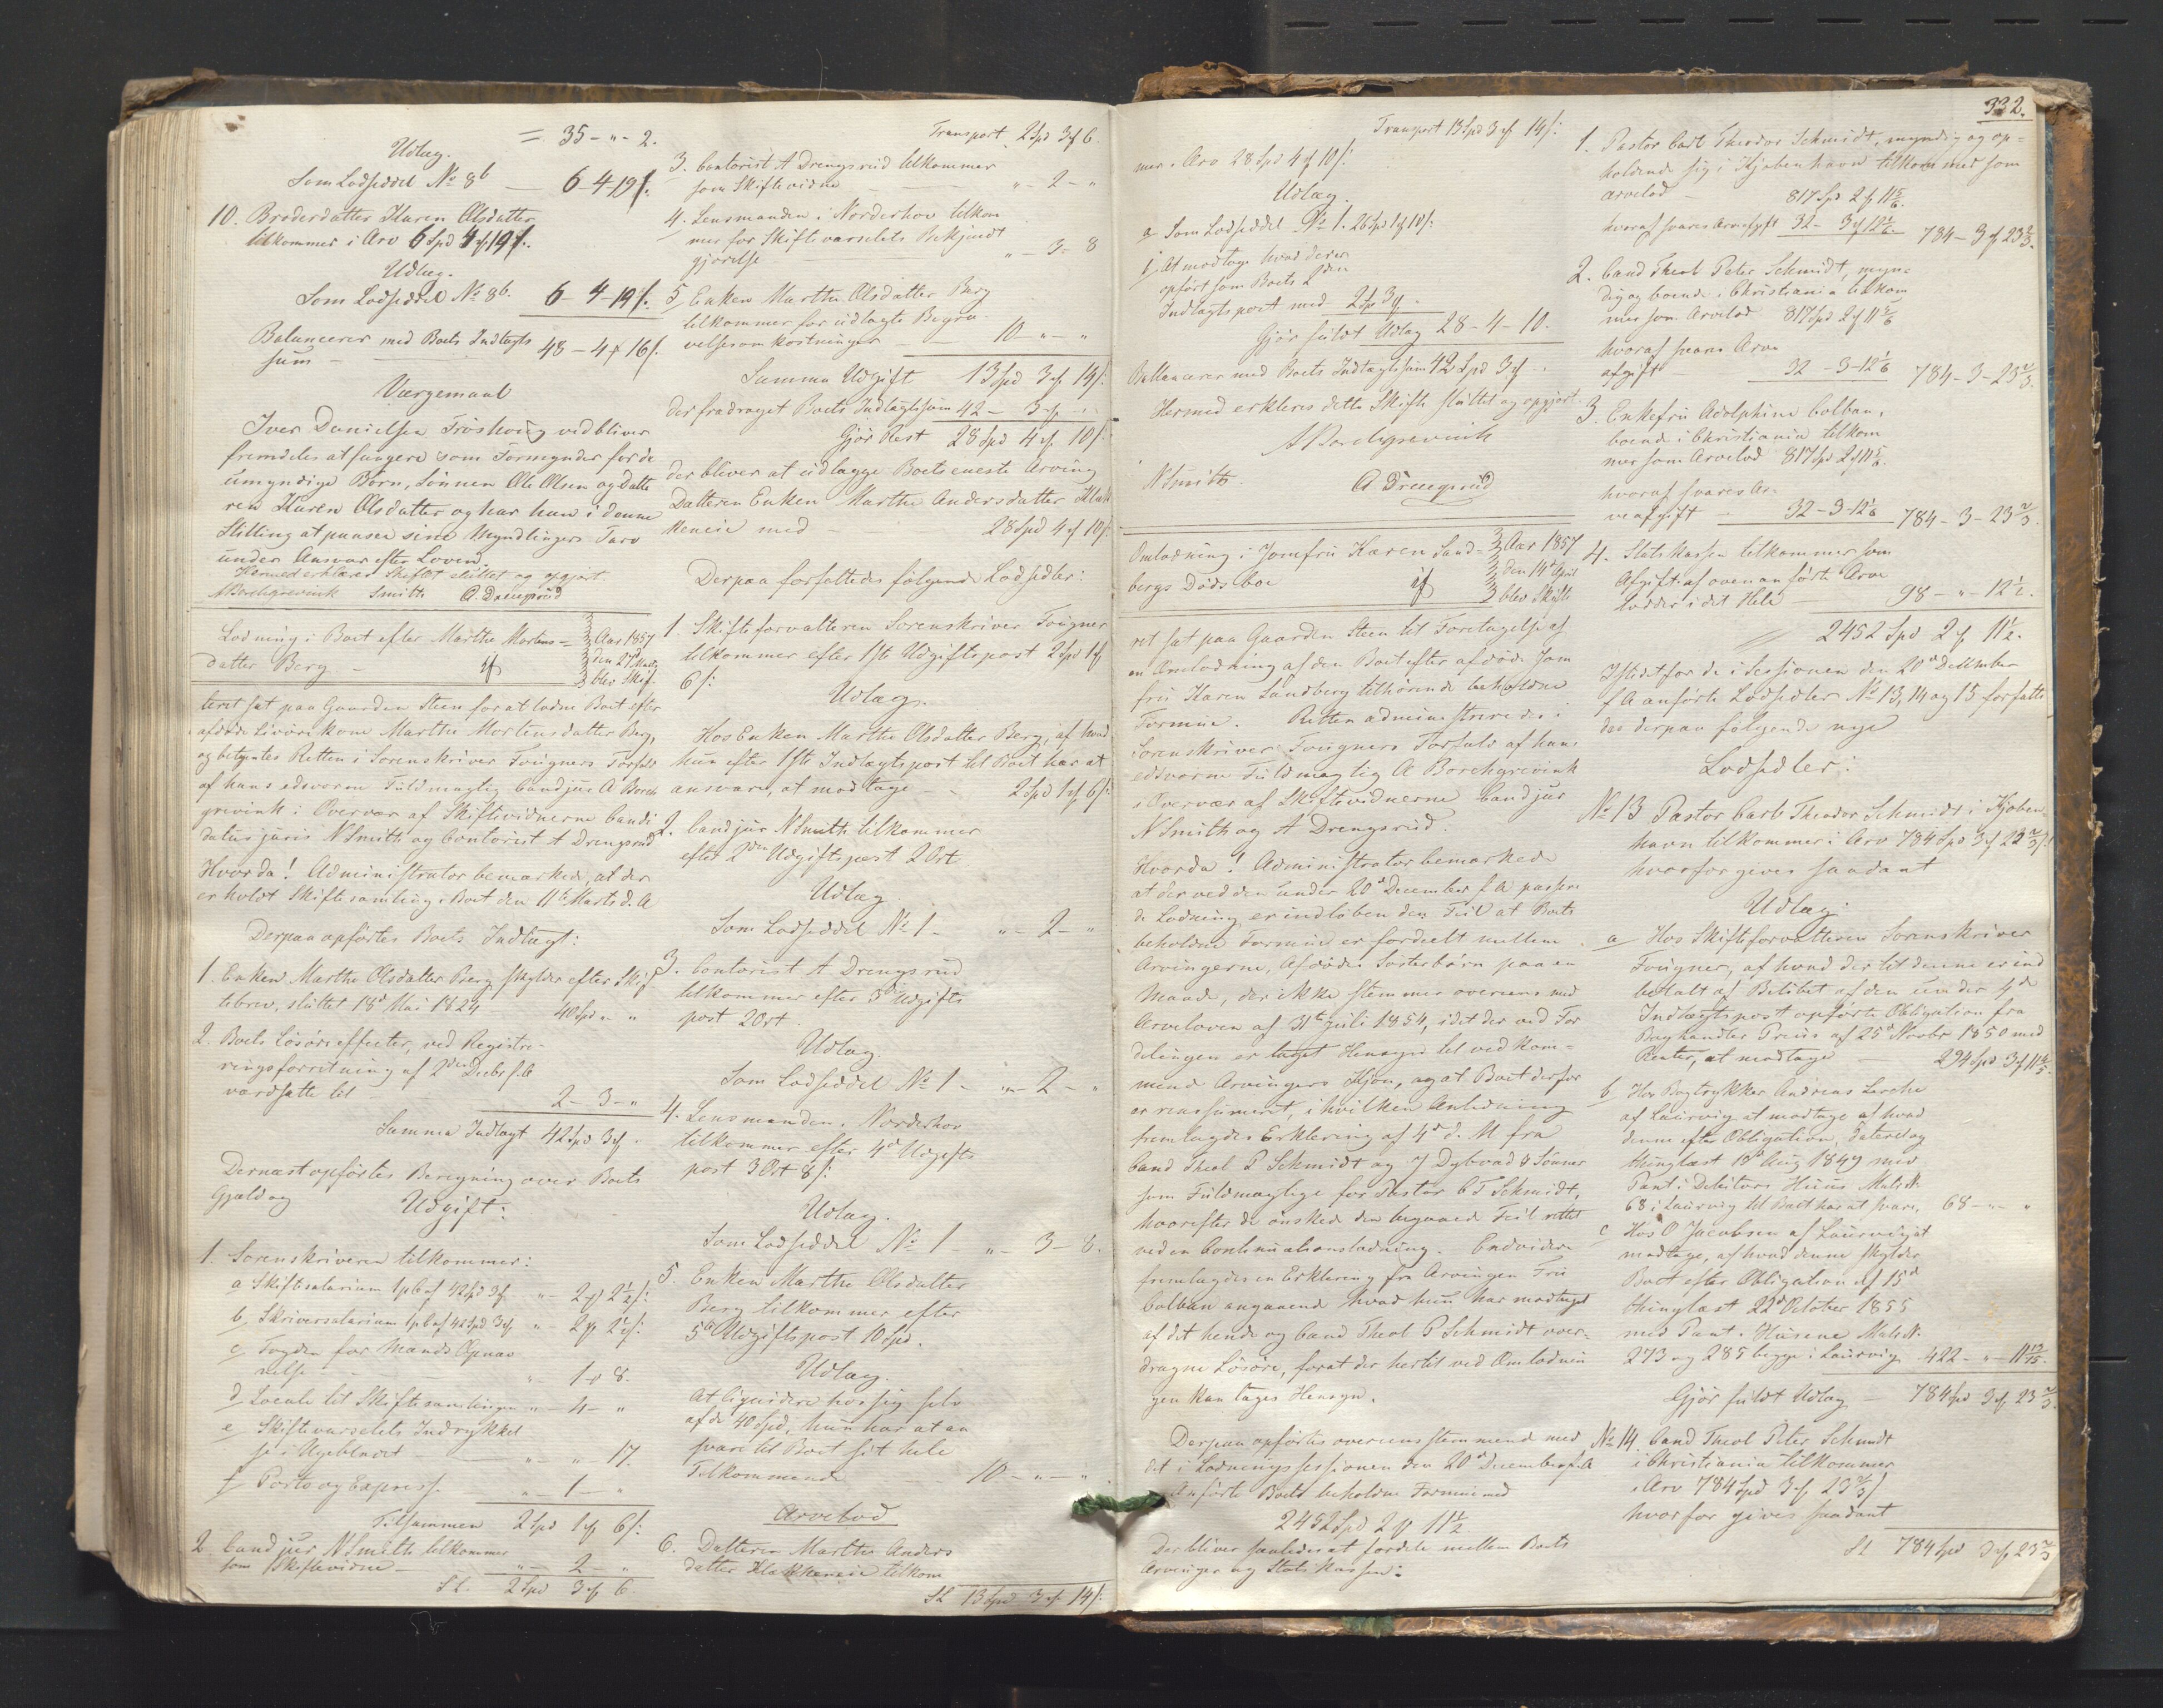 = 35 - " - 2.
Udlæg.
Som Lodseddel No 8b — 6-4-19ß.
10. Broderdatter Karen Olsdatter
tilkommer i Arv 6 Spd 4 ꝑ 19ß.
Udlæg.
Som Lodseddel No 8b. 6-4-19ß.
Balancerer med Boets Indtægts
sum — 48-4ꝑ16ß.
Værgemaal
Iver Danielsen Frøshoug vedbliver
fremdeles at fungere som Formynder for de
umyndige Børn, Sønnen Ole Olsen og Datte
ren Karen Olsdatter og har han i denne
Stilling at paasee sine Myndlingers Tarv
under Ansvar efter Loven.
Hermed erklæres Skiftet sluttet og opgjort.
A Borchgrevink Smith A. Drengsrud
Lodning i Boet efter Marthe Mortens=
datter Berg.
Aar 1857
den 27 Marts
blev Skif-
teret sat paa Gaarden Steen for at lodne Boet efter
afdøde Livørekone Marthe Mortensdatter Berg,
og betjentes Retten i Sorenskriver Fougners Forfald
af hans edsvorne Fuldmægtig Cand jur A Borch
grevink i Overvær af Skiftevidnerne Candi
datus juris N Smith og Contorist A Drengsrud
Hvorda! Administrator bemærkede, at der
er holdt Skiftesamling i Boet den 11te Marts d. A
Derpaa opførtes Boets Indtægt:
1. Enken Marthe Olsdatter Berg skylder efter Skif
tebrev, sluttet 18d Mai 1824 40 Spd " "
2. Boets Løsøreeffecter, ved Registre-
ringsforretning af 2den Decbr f. A
værdsatte til — 2-3-"
Summa Indtægt 42 Spd 3ꝑ "
Dernæst opførtes Beregning over Boets
Gjæld og
Udgift:
1. Sorenskriveren tilkommer:
a Skiftesalarium 1 pCt af 42 Spd 3ꝑ " - 2ꝑ 2½ß:
b, Skriversalarium 1 pCt af 42 Spd 3ꝑ " - 2ꝑ 2½ß:
c, Fogden for Mands Opnæv
nelse — " - 1 - 8.
d Locale til Skiftesamlingen " - 4 - "
e Skiftevarselets Indrykkel
se i Ugebladet — " - " - 17.
f Porto og Expresse " - 1 - "
Tilsammen 2 Spd 1ꝑ 6ß:
2 Cand jur N Smith tilkommer
som Skiftevidne — " - 2 - "
Lt. 2 Spd 3ꝑ 6
Transport 2 Spd 3ꝑ 6.
3. Contorist A Drengsrud tilkommer
som Skiftevidne — " - 2 - "
4. Lensmanden i Norderhov tilkom
mer for Skiftevarselets Bekjendt
gjørelse — " - 3 - 8
5 Enken Marthe Olsdatter Berg
tilkommer for udlagte Begra-
velsesomkostninger — 10 - " - "
Summa Udgift 13 Spd 3ꝑ 14ß:
Der fradraget Boets Indtægtssum 42 - 3ꝑ - "
Gjør Rest 28 Spd 4ꝑ 10ß:
der bliver at udlægge Boets eneste Arving
Datteren Enken Marthe Andersdatter Klæk
keneie med — 28 Spd 4ꝑ 10ß:
Derpaa forfattedes følgende Lodsedler:
1. Skifteforvalteren Sorenskriver Fougner
tilkommer efter 1ste Udgiftspost 2 Spd 1ꝑ
6ß:
Udlæg.
Hos Enken Marthe Olsdatter Berg, af hvad
hun efter 1ste Indtægtspost til Boet har at
ansvare, at modtage — 2 Spd 1ꝑ 6ß:
2. Cand jur N Smith tilkommer
efter 2den Udgiftspost 2 Ort
Udlæg
Som Lodseddel No 1 - " - 2 - "
3. Contorist A Drengsrud
tilkommer efter 3d Udgifts
post 2 Ort.
Udlæg.
Som Lodseddel No 1 - " - 2 - "
4. Lensmanden i Norderhov
tilkommer efter 4d Udgifts
post 3 Ort 8ß:
Udlæg.
Som Lodseddel No 1 - " - 3 - 8.
5. Enken Marthe Olsdatter
Berg tilkommer efter
5te Udgiftspost 10 Spd.
Udlæg.
At liqvidere hos sig selv
af de 40 Spd, hun har at an
svare til Boet sit hele
Tilkommende 10 - " - "
Arvelod
6. Datteren Marthe Anders
datter Klækkeneie tilkom
Lt 13 Spd 3ꝑ 14ß:
332.
Transport 13 Spd 3ꝑ 14ß:
mer i Arv 28 Spd 4ꝑ 10ß:
Udlæg.
a Som Lodseddel No 1. 26 Spd 1ꝑ 10ß:
b, At modtage hvad der er
opført som Boets 2den
Indtægtspost med 2 Sp 3ꝑ.
Gjør fuldt Udlæg 28-4-10.
Ballancerer med Boets Indtægtssum 42 Spd 3ꝑ.
Hermed erklæres dette Skifte sluttet og opgjort.
A Borchgrevink
N Smith. A. Drengsrud
Omlodning i Jomfru Karen Sand=
bergs Dødsboe
Aar 1857
den 14d April
blev Skifte
ret sat paa Gaarden Steen til Foretagelse af
en Omlodning af den Boet efter afdøde Jom
fru Karen Sandberg tilhørende beholdne
Formue. Retten administreredes i
Sorenskriver Fougners Forfald af hans
edsvorne Fuldmægtig A Borchgrevink
i Overvær af Skiftevidnerne Cand jur
N Smith og A Drengsrud.
Hvorda! Administrator bemærkede
at der ved den under 20d December f A passere
de Lodning er indløben den Feil at Boets
beholdne Formue er fordeelt mellem
Arvingerne, Afdødes Søsterbørn paa en
Maade, der ikke stemmer overeens med
Arveloven af 31te Juli 1854, idet der ved For
delingen er taget Hensyn til vedkom=
mende Arvingers Kjøn, og at Boet derfor
er reassumeret, i hvilken Anledning
fremlagdes Erklæring af 4d d. M fra
Cand Theol P Schmidt og J Dybvad & Sønner
som Fuldmægtige for Pastor C T Schmidt,
hvorefter de ønskede den begaaede Feil rettet
ved en Continuationslodning. Endvidere
fremlagdes en Erklæring fra Arvingen Fru
Colban angaaende hvad hun har modtaget
af det hende og Cand Theol P Schmidt over-
dragne Løsøre, forat der hertil ved Omlodnin
gen kan tages Hensyn.
Derpaa opførtes overeensstemmende med
det i Lodningssessionen den 20d December f. A
Anførte Boets beholdne Formue med
2452 Spd 2ꝑ 11½
Der bliver saaledes at fordele mellem Boets
Arvinger og Stats Kassen:
1. Pastor Carl Theodor Schmidt, myndig og op-
holdende sig i Kjøbenhavn tilkommer som
Arvelod — 817 Spd 2ꝑ 11 5/6.
hvoraf svares Arveafgift 32 - 3ꝑ 12 1/6. 784 - 3ꝑ 23 2/3.
2. Cand Theol Peter Schmidt, myn-
dig og boende i Christiania tilkom
mer som Arvelod 817 Spd 2ꝑ 11 5/6
hvoraf svares Arve
afgift 32 - 3 - 12 1/6 784 - 3 - 23 2/3.
3. Enkefru Adolphine Colban,
boende i Christiania tilkom
mer som Arvelod 817 Spd 2ꝑ 11 5/6.
hvoraf svares Ar-
veafgift — 32 - 3 - 12 1/6 784 - 3 - 23 2/3.
4. Stats Kassen tilkommer som
Afgift af ovenanførte Arve
lodder i det Hele 98 - " - 12½.
2452 Spd 2ꝑ 11½.
Istedetfor de i Sessionen den 20d December
f A anførte Lodsedler No 13, 14 og 15 forfatte
des derpaa følgende nye
Lodsedler:
No 13 Pastor Carl Theodor Schmidt i Kjøben
havn tilkommer i Arv 784 Spd 3ꝑ 23 2/3ß:
hvorfor gives saadant
Udlæg:
a Hos Skifteforvalteren Sorenskriver
Fougner, af hvad der til denne er ind
betalt af Beløbet af den under 4de
Indtægtspost opførte Obligation fra
Boghandler Preus af 25d Novbr 1850 med
Renter, at modtage — 294 Spd 3ꝑ 11 4/5.
b Hos Bogtrykker Andreas Lerche
af Laurvig at modtage af hvad
denne efter Obligation, dateret og
thinglæst 13d Aug 1849 med
Pant i Debitors Huus Matr N.
68 i Laurvig til Boet har at svare, 68 - " - "
c Hos O Jacobsen af Laurvig at
modtage, af hvad denne skylder
Boet efter Obligation af 15d
thinglæst 22d October 1855
med Pant i Husene Matr N.
273 og 285 begge i Laurvig 422 - " - 11 13/15.
Gjør fuldt Udlæg — 784 Spd 3ꝑ 23 2/3.
No 14. Cand Theol Peter Schmidt
i Christiania tilkommer
i Arv 784 Spd 3ꝑ 23 2/3ß
hvorfor gives saadant
Lt 784 Spd 3ꝑ 23 2/3